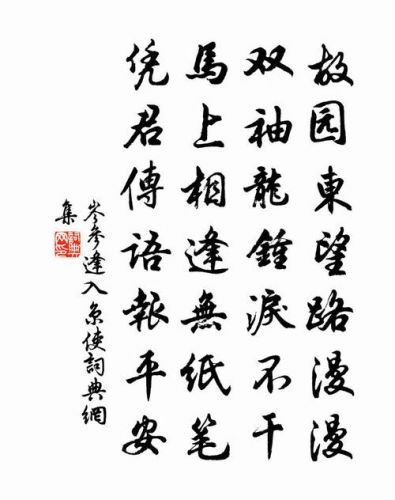 故园東望路漫漫
双袖龍鍾淚不干
馬上相逢無紙笔
凭君傳語報平安
岑參逢入京使詞典網
集